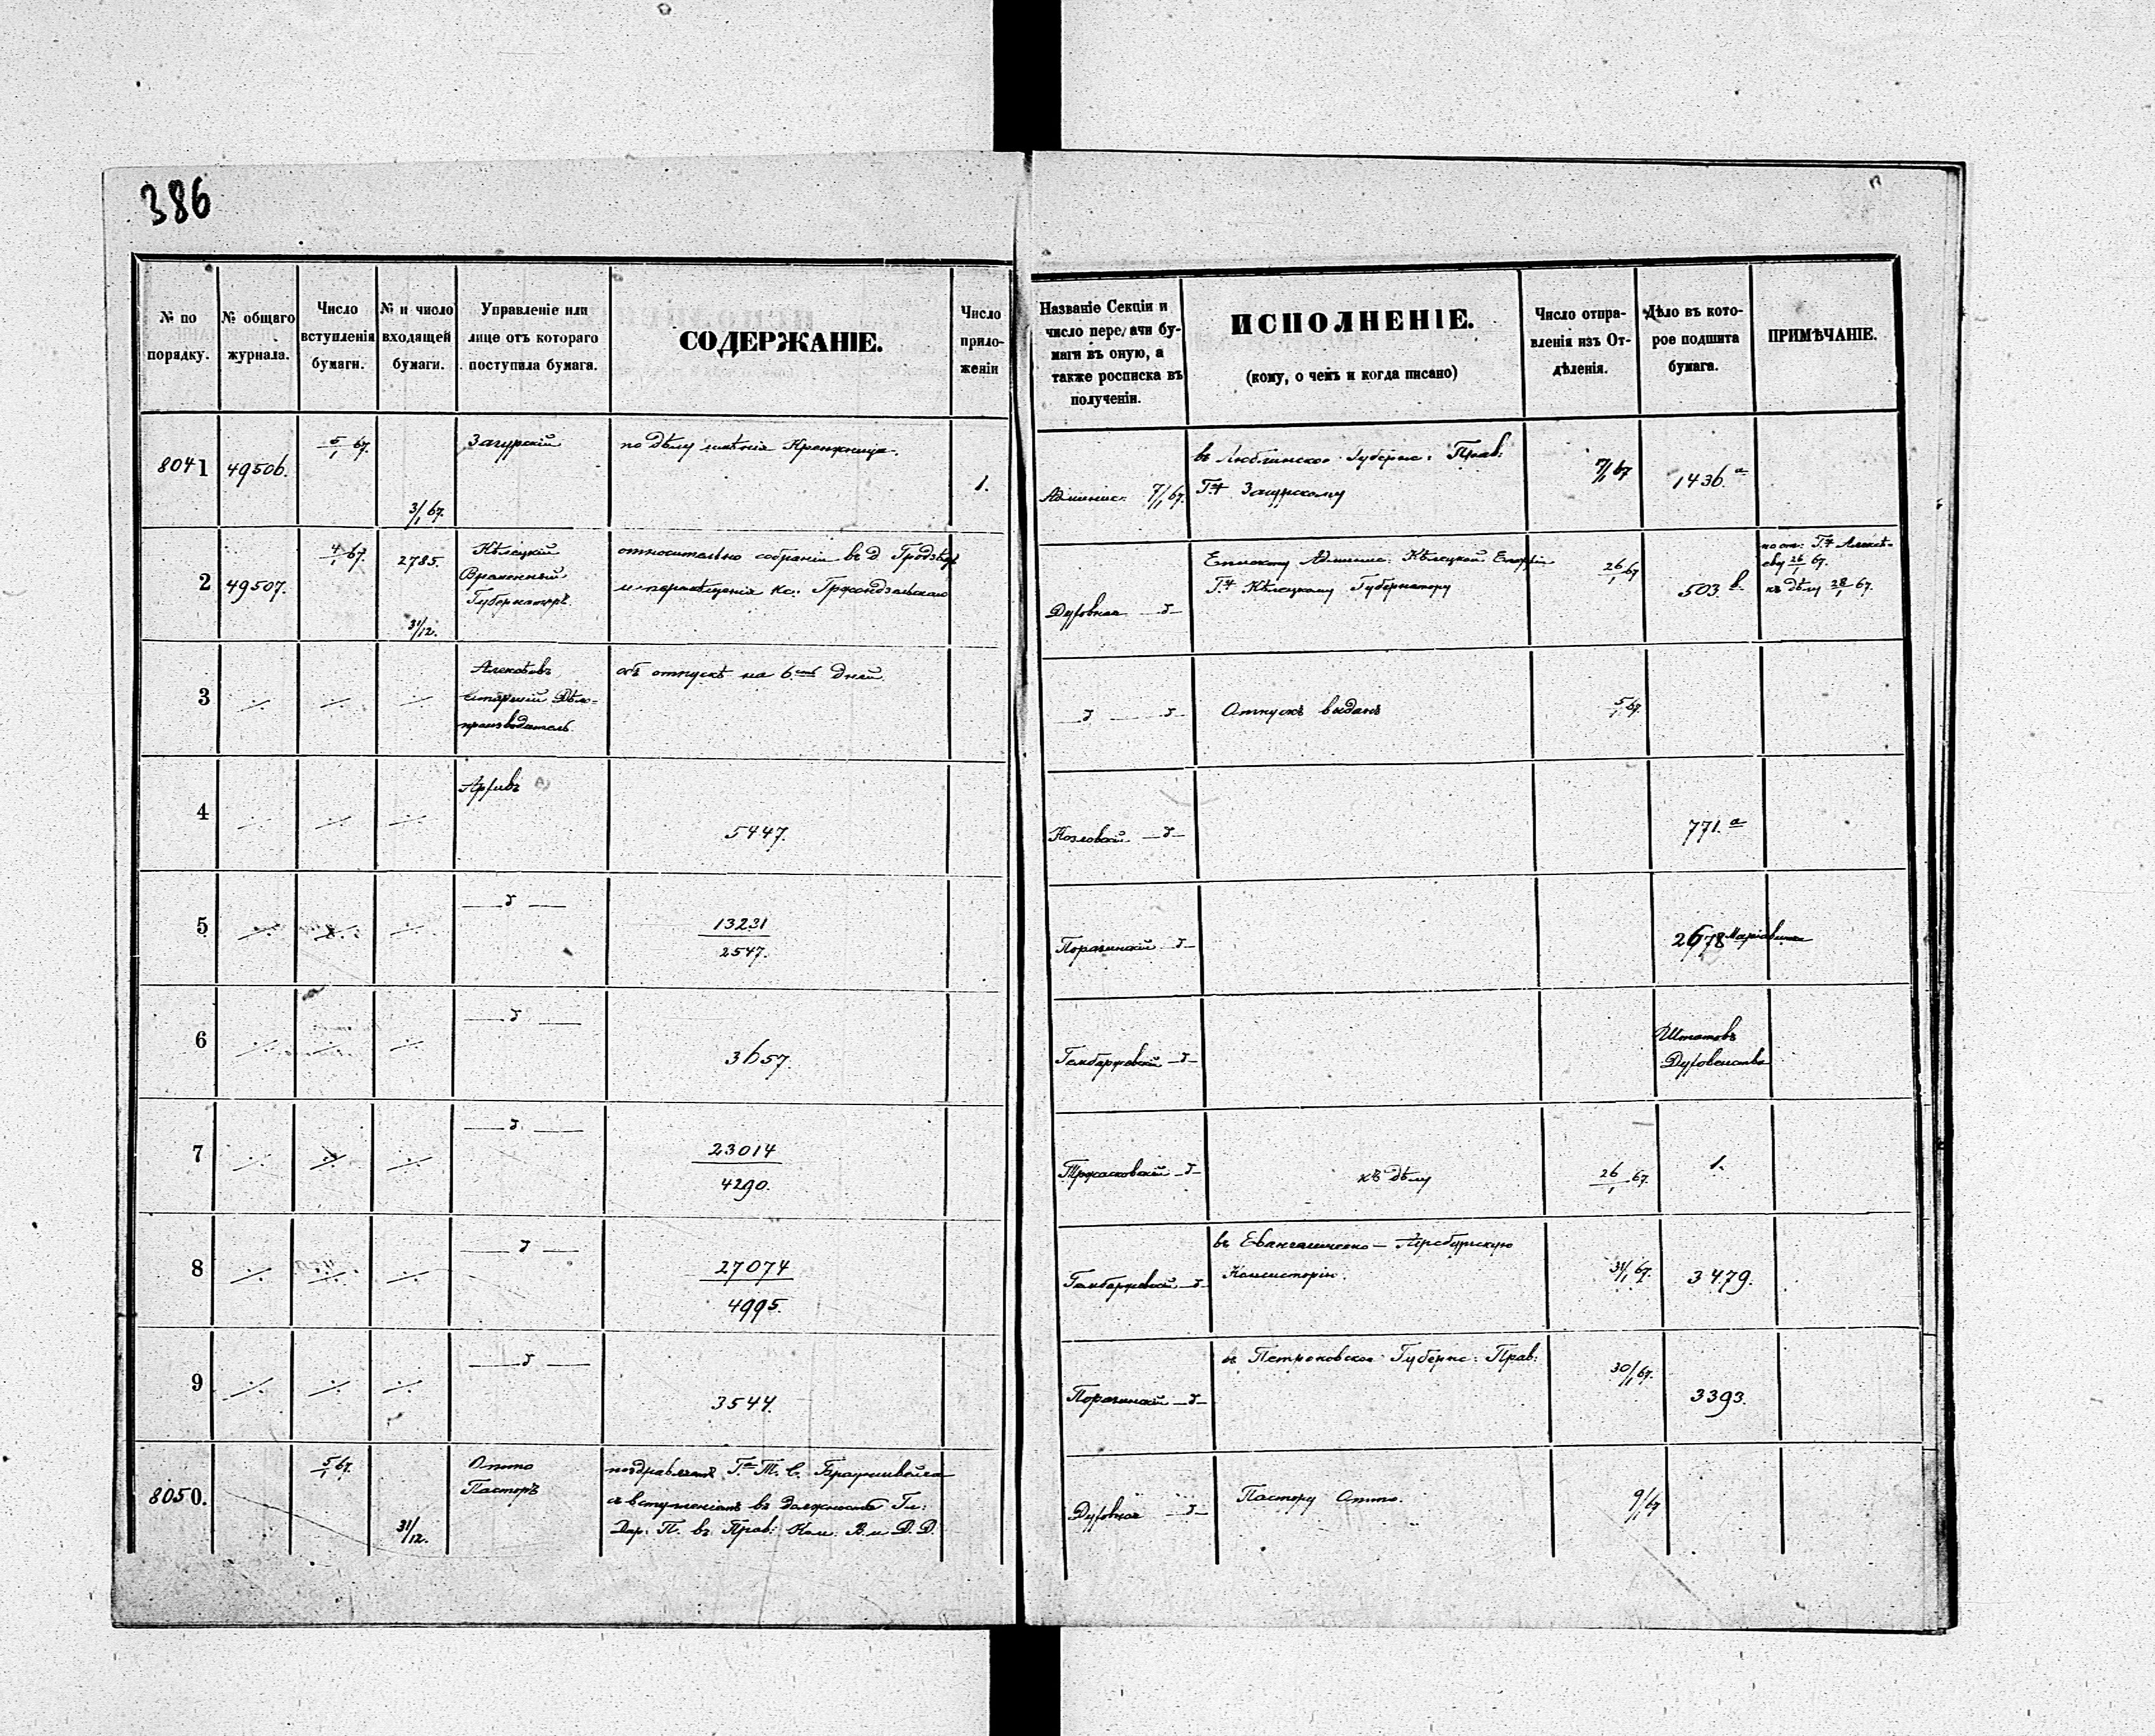 386
№ по порядку.
№ общаго журнала.
Число вступленія бумаги.
№ и число входящей бумаги.
Управленіе или лице отъ котораго поступила бумага.
СОДЕРЖАНІЕ.
Число приложеній
Названіе Секціи и число передачи бумаги въ оную, а также росписка въ полученіи.
ИСПОЛНЕНІЕ.
(кому, о чемъ и когда писано)
Число отправленія изъ Отдѣленія.
Дѣло въ которое подшита бумага.
ПРИМѢЧАНІЕ.
8041
49506.
5/1 67.
3/1 67.
Загурскій
по дѣлу имѣнія
1.
Админис: 7/1 67.
въ Люблинское Губернс: Прав:
Г. Загурскому
7/1 67
1436.а
2
49507.
4/1 67.
2785.
31/12.
Кѣлецкій
Военный
Губернаторъ.
относительно собранія въ д.
и перемѣщенія кс:
Духовная
Епископу Админис: Кѣлецкой Епархіи
Г. Кѣлецкому Губернатору
26/1 67
503. в.
26/1 67.
къ дѣлу 28/1 67.
3
Алексѣевъ
старшій Дѣло-
производитель.
объ отпускѣ на 6 дней.
Отпускъ выданъ
5/1 67.
4
Архивъ
5447.
Козловскій
771. а
5
13231
2547.
2678
6
3657.
Гембаржевскій
Штатовъ
Духовенства
7
23014
4290.
къ дѣлу
26/1 67.
1.
8
27074
4995.
Гембаржевскій
въ Евангелическо-Аугсбургскую
Консисторію.
31/1 67.
3479.
9
3544.
въ Петроковское Губернс: Прав:
30/1 67.
3393.
8050.
5/1 67.
31/12.
Отто
Пасторъ
поздравляетъ Г. Т. С. Брауншвейга
съ вступленіемъ въ должность Гл:
Дир: П. въ Прав: Ком: В. и Д. Д.
Духовная
Пастору Отто.
9/1 67